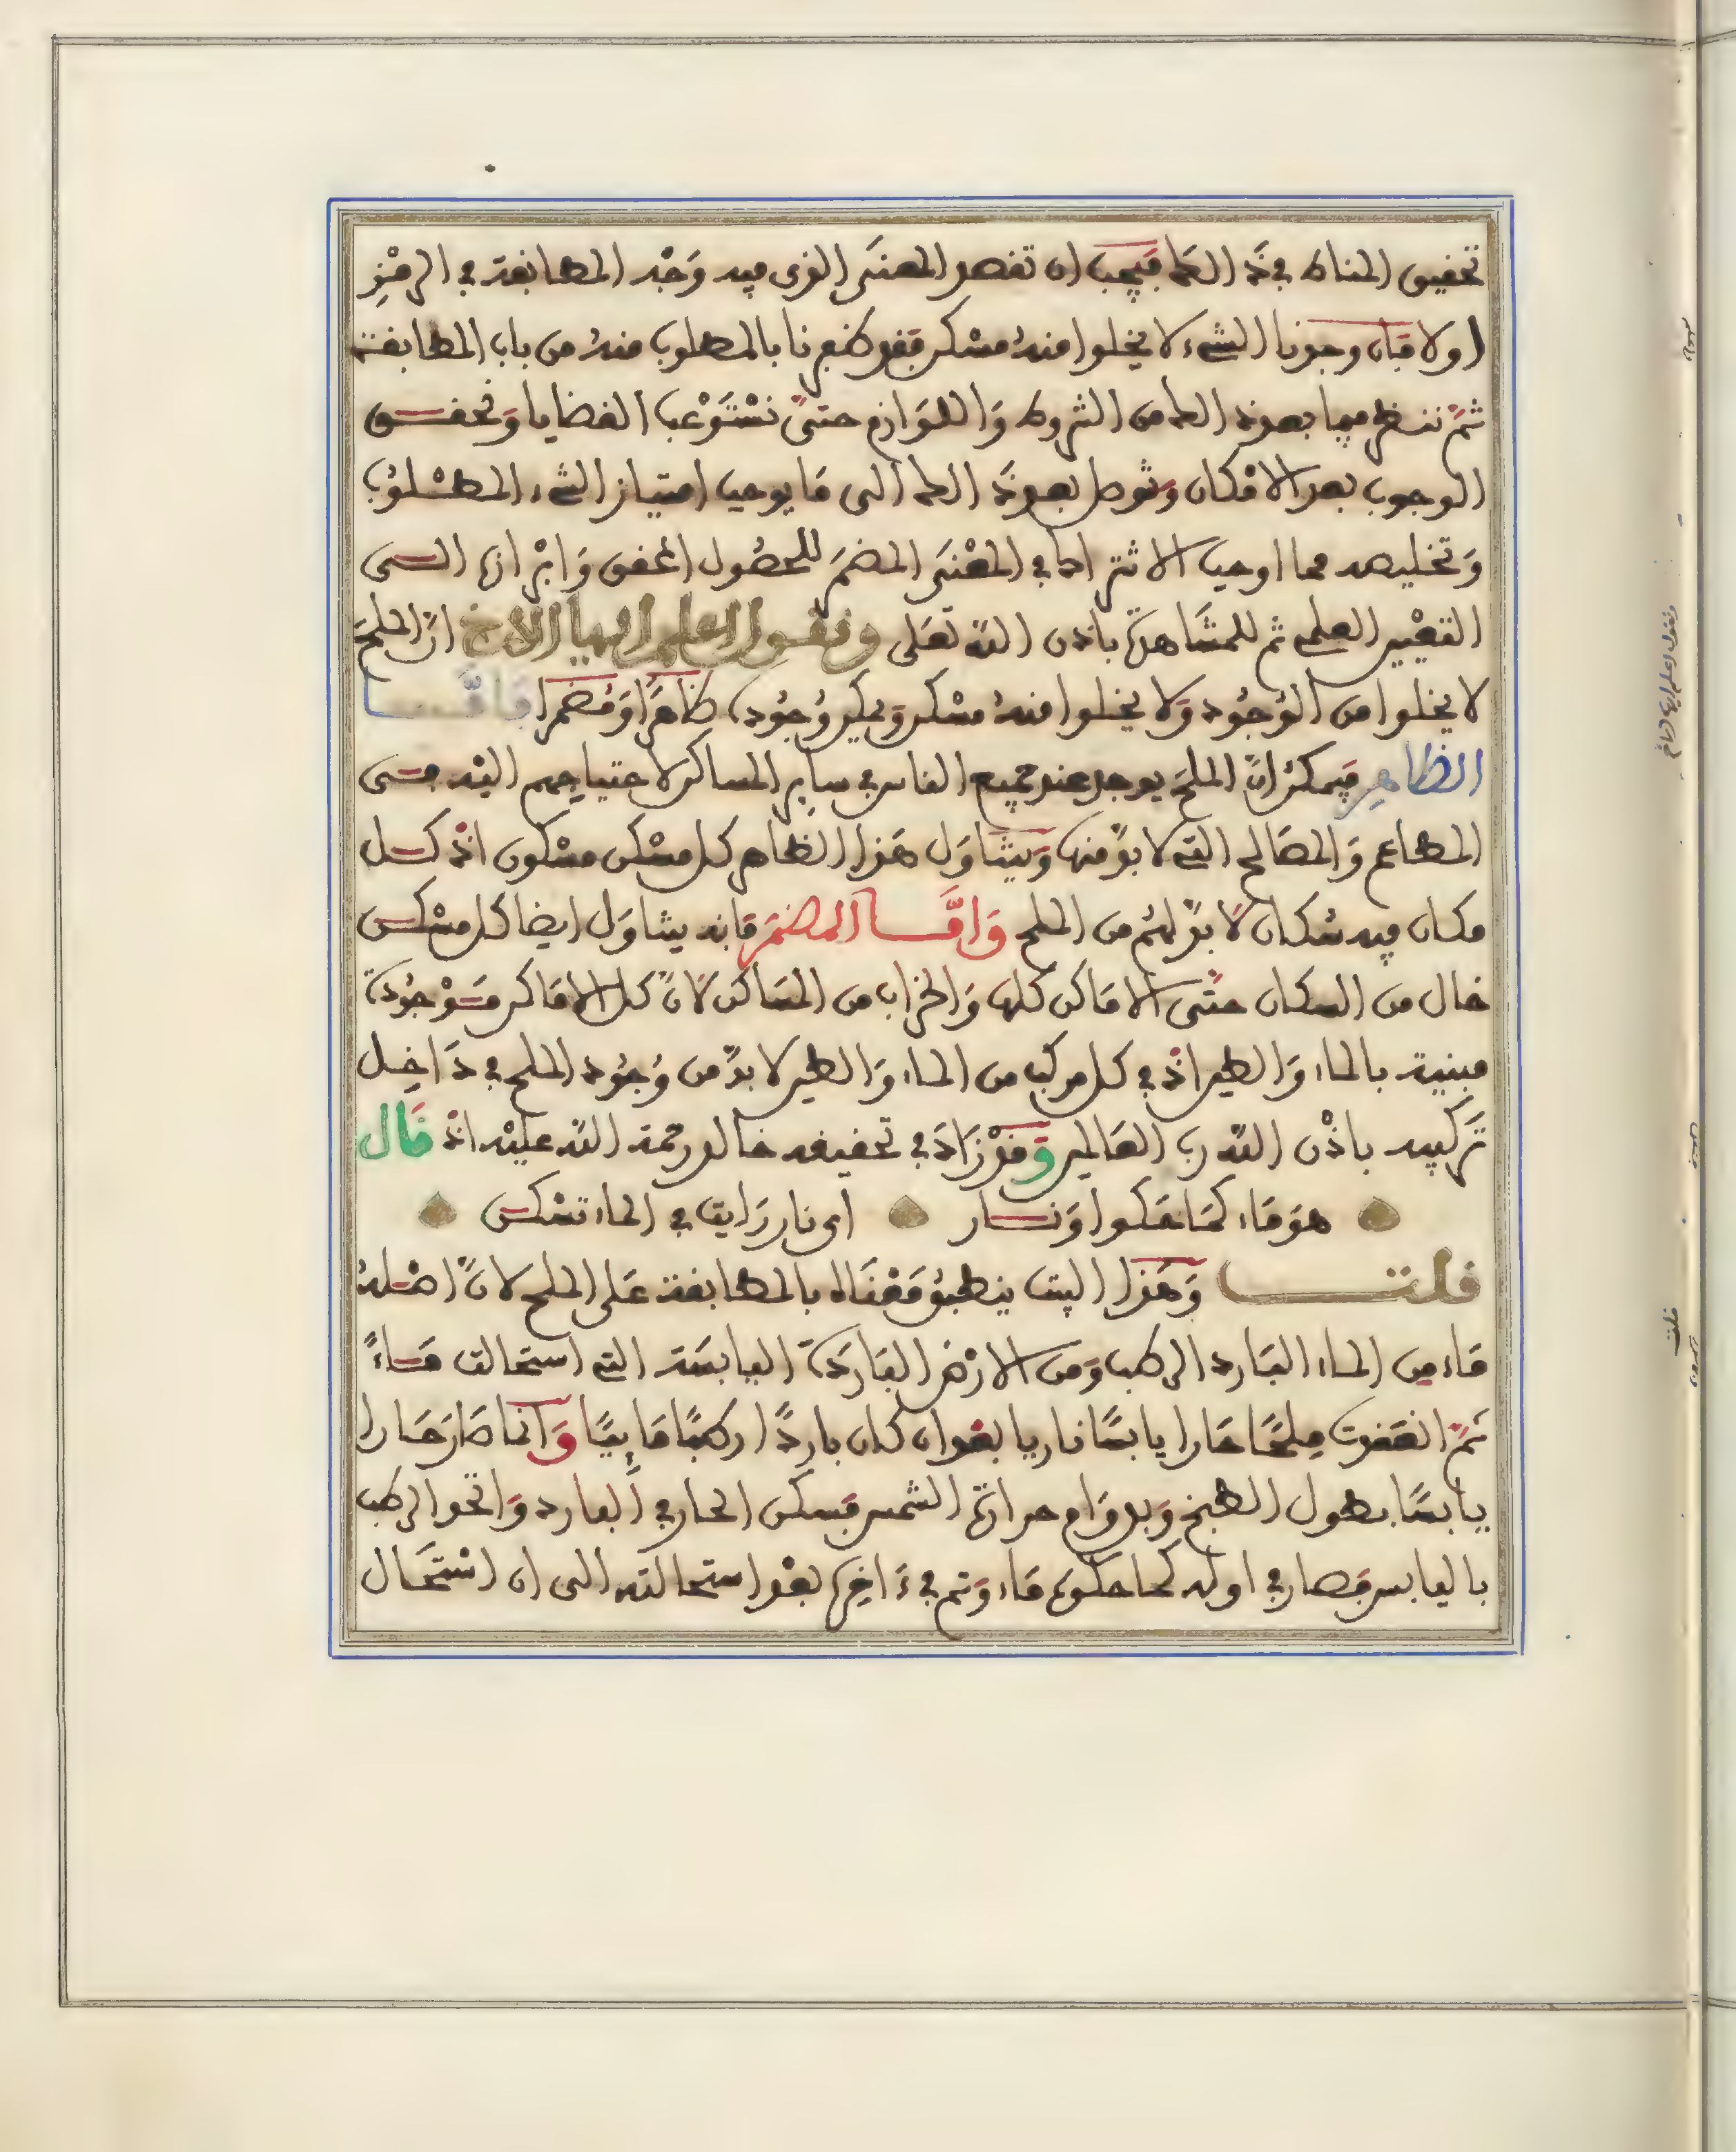 تحقيق المناط في ذلك فيجب ان تقصد المعنى الذي فيه وجه المطابقة في الرمز
اولا فان وجدنا الشيء لا يخلوا منه مسكن فقد ظفرنا بالمطلوب منه من باب المطابقة
ثم ننظر فيما بعد ذلك من الشروط واللوازم حتى نستوعب القضايا ونحقق
الوجوب بعد الامكان ونوصل بعد ذلك الى ما يوجب امتياز الشيء المطلوب
وتخليصه مما اوجب الاشتراك في المعنى المضمر للحصول المحقق وابرازه الى
التعيين العلمي ثم للمشاهدة باذن الله تعلى ونقول اعلم ايها الاخ ان الملح
لا يخلوا من الوجود ولا يخلوا منه مسكن ويمكن وجوده ظاهرا ومضمرا فامـا
الظاهر فيمكن ان الملح يوجد عند جميع الناس في ساير المساكن لاحتياجهم اليه في
المطاعم والمصالح التي لا بد منها ويتناول هذا الظاهر كل مسكن مسكون اذ كل
مكان فيه سكان لا بد لهم من الملح وامـا المضمر فانه يتناول ايضا كل مسكن
خال من السكان حتى الاماكن كلها والخراب من المساكن لان كل الاماكن موجودة
مبنية بالماء والطين اذ في كل مركب من الماء والطين لا بد من وجود الملح في داخل
تركيبه باذن الله رب العالمين وقد زاد في تحقيقه خالد رحمة الله عليه اذ قال
هو ماء كما حكوا ونار اي نار رايت في الماء تسكن
قلت وهذا البيت ينطبق معناه بالمطابقة على الملح لان اصله
ماء من الماء البارد الرطب ومن الارض الباردة اليابسة التي استحالت ماء
ثم انعقدت ملحا حارا يابسا ناريا بعد ان كان باردا رطبا ماييا وانما صار حارا
يابسا بطول الطبخ وبدوام حرارة الشمس فسكن الحار في البارد واتحد الرطب
باليابس فصار في اوله كما حكوه ماء وتم في ءاخره بعد استحالته الى ان استحال
ونقول اعلم ايها الاخ
قلت